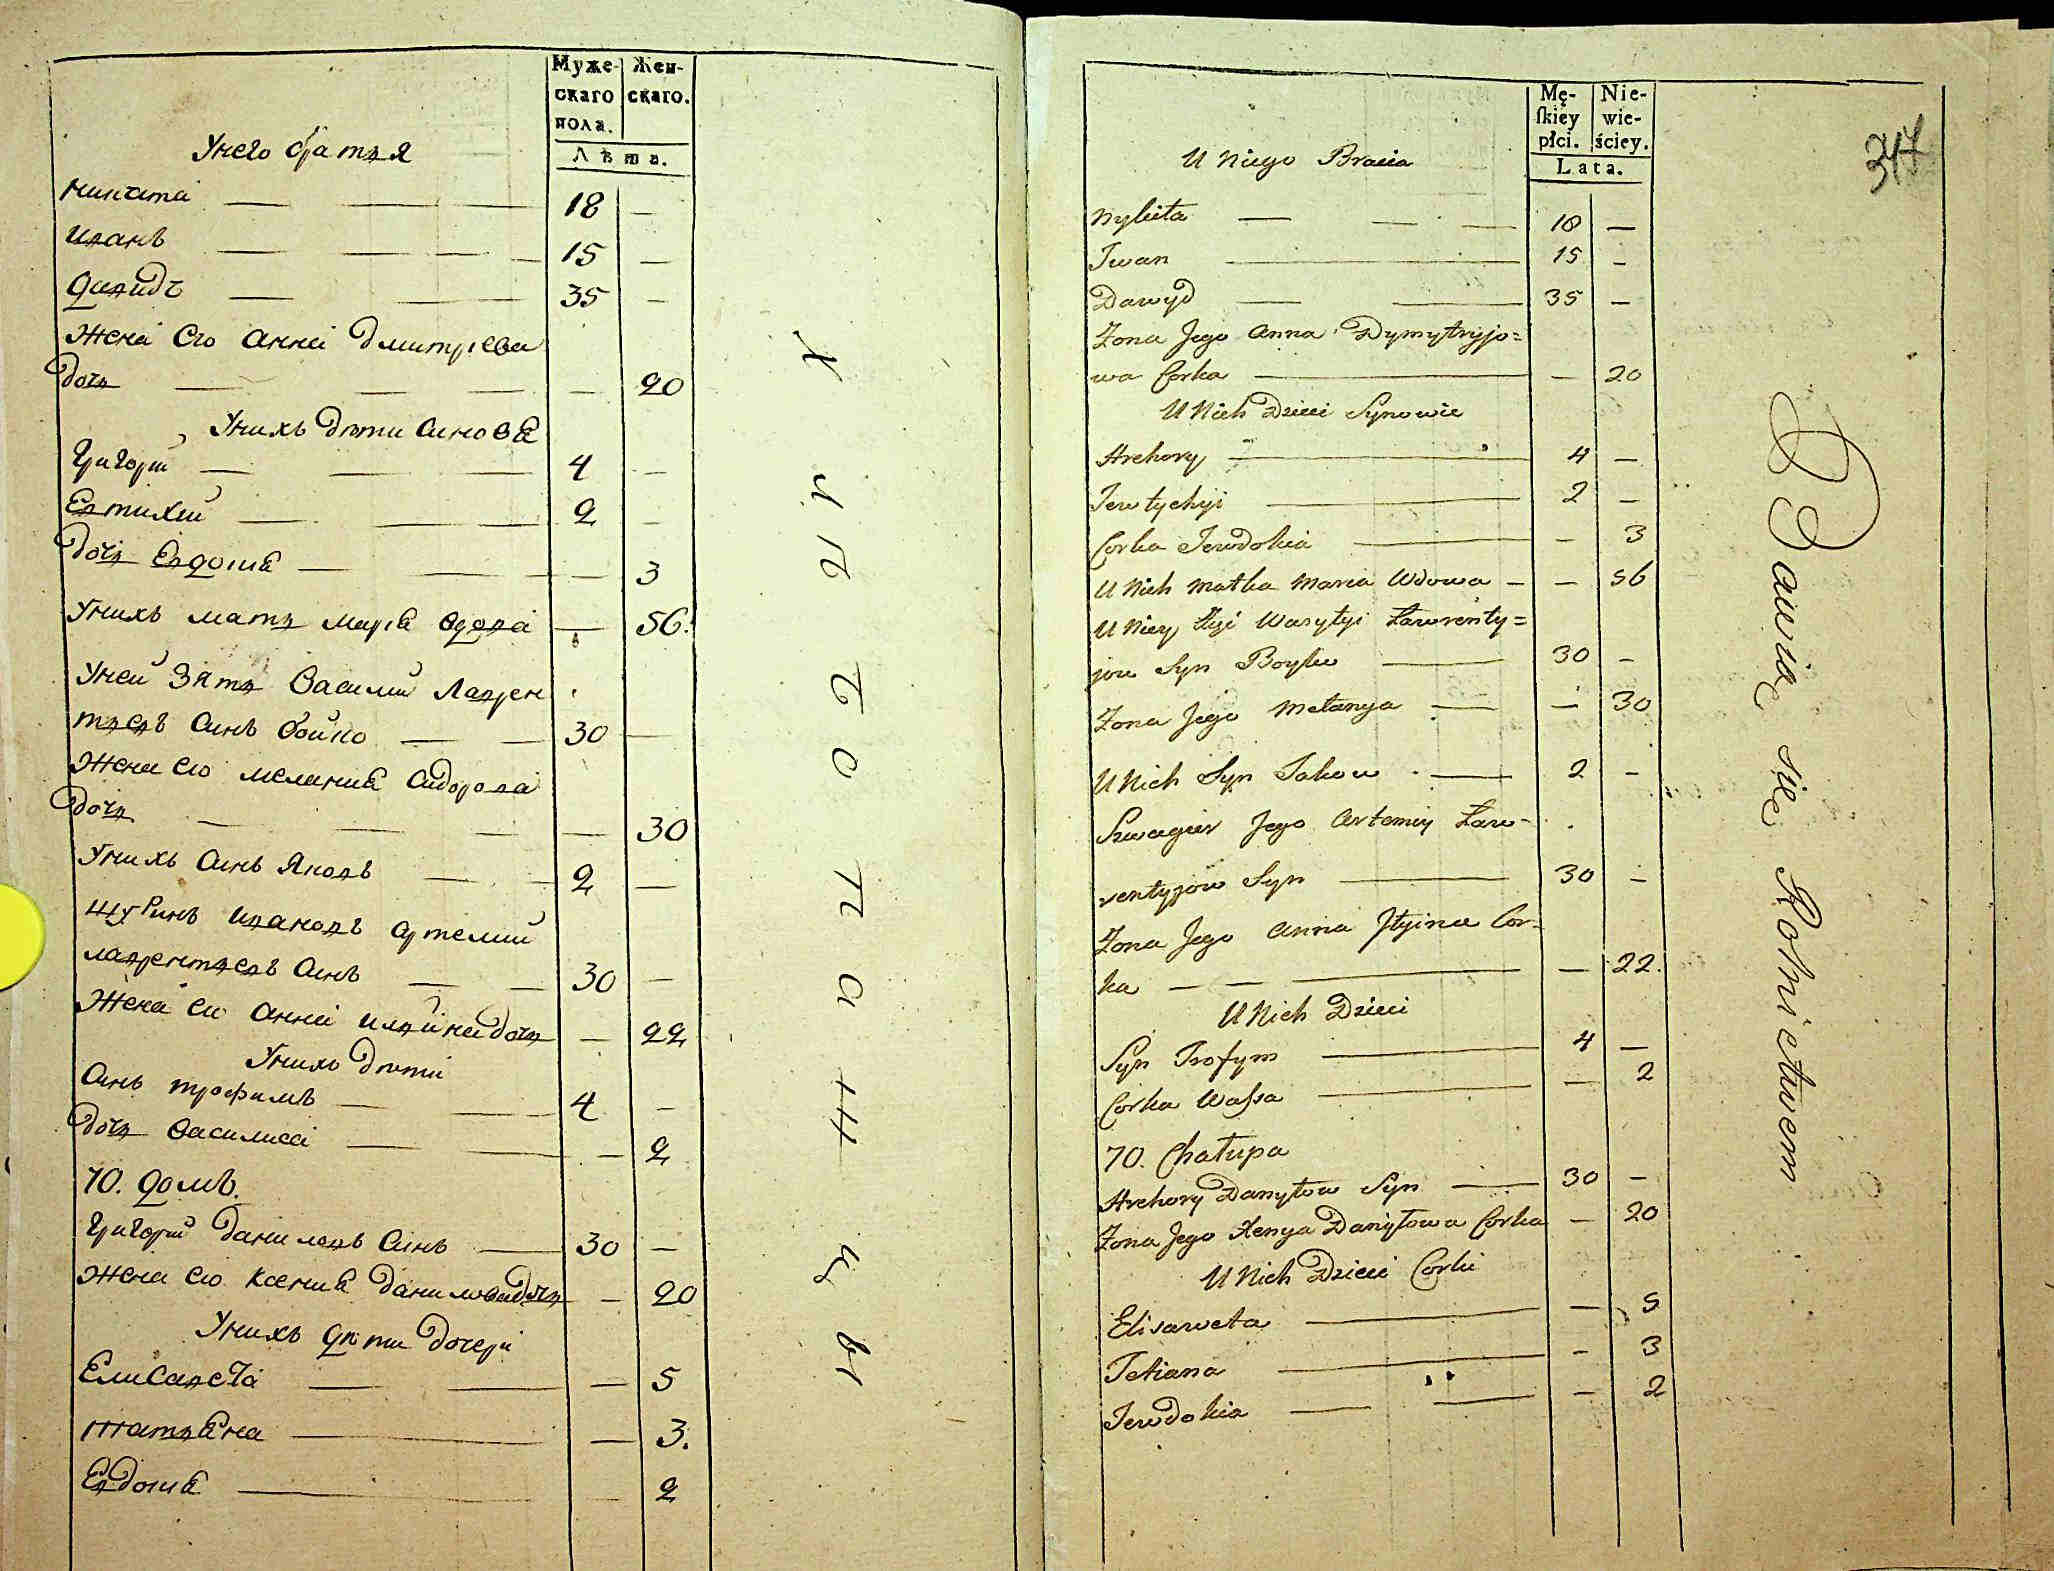 Муже-
скаго
пола.
Жен-
скаго.
Лѣта.
Унего братья
Никита — 18 —
Иванъ — 15 —
Давидъ — 35 —
Жена Его Анна Дмитрiева
дочь — 20
Унихъ дѣти Сыновя
Григорiй — 4 —
Евтихiй — 2 —
дочь Евдокия — 3
Унихъ мать Марiя вдова — 56.
Уней Зять Василий Лаврен
тьевъ Синъ бойко — 30 —
Жена его мелания Сидорова
дочь — 30
Унихъ Синъ Яковъ — 2 —
шуринъ Ивановъ Артемий
лаврентьевъ Синъ — 30 —
Жена его Анна ильина дочь — 22
Унихъ дѣти
Синъ трофимъ — 4 —
дочь Василиса — 2
70. домъ.
Григорiй даниловъ Синъ — 30 —
Жена его Ксения данилова дочь — 20
Унихъ дѣти дочери
Елисавета — 5
татьяна — 3.
Евдокия — 2
Хлѣбопашцы
Mę-
skiey
płci.
Nie-
wie-
ściey.
Lata.
347
U Niego Bracia
Nykita — 18 —
Iwan — 15 —
Dawyd — 35 —
Żona Jego Anna Dymytryjo=
wa Corka — 20
U Nich Dzieci Synowie
Hrehory — 4 —
Jewtychyi — 2 —
Corka Jewdokia — 3
U Nich Matka Maria Wdowa — — 56
U Niey Zięć Wasyłyi Ławrenty=
jow Syn Boyko — 30 —
Żona Jego Mełanya — — 30
U Nich Syn Jakow — 2 —
Szwagier Jego Artemiy Ław-
rentyjow Syn — 30 —
Żona Jego Anna Jłyina Cor-
ka — 22.
U Nich Dzieci
Syn Trofym — 4 —
Corka Wassa — 2
70. Chałupa
Hrehory Danyłow Syn — 30 —
Żona Jego Xenya Danyłowa Corka — 20
U Nich Dzieci Corki
Elisaweta — 5
Tetiana — 3
Jewdokia — 2
Bawią się Rolnictwem